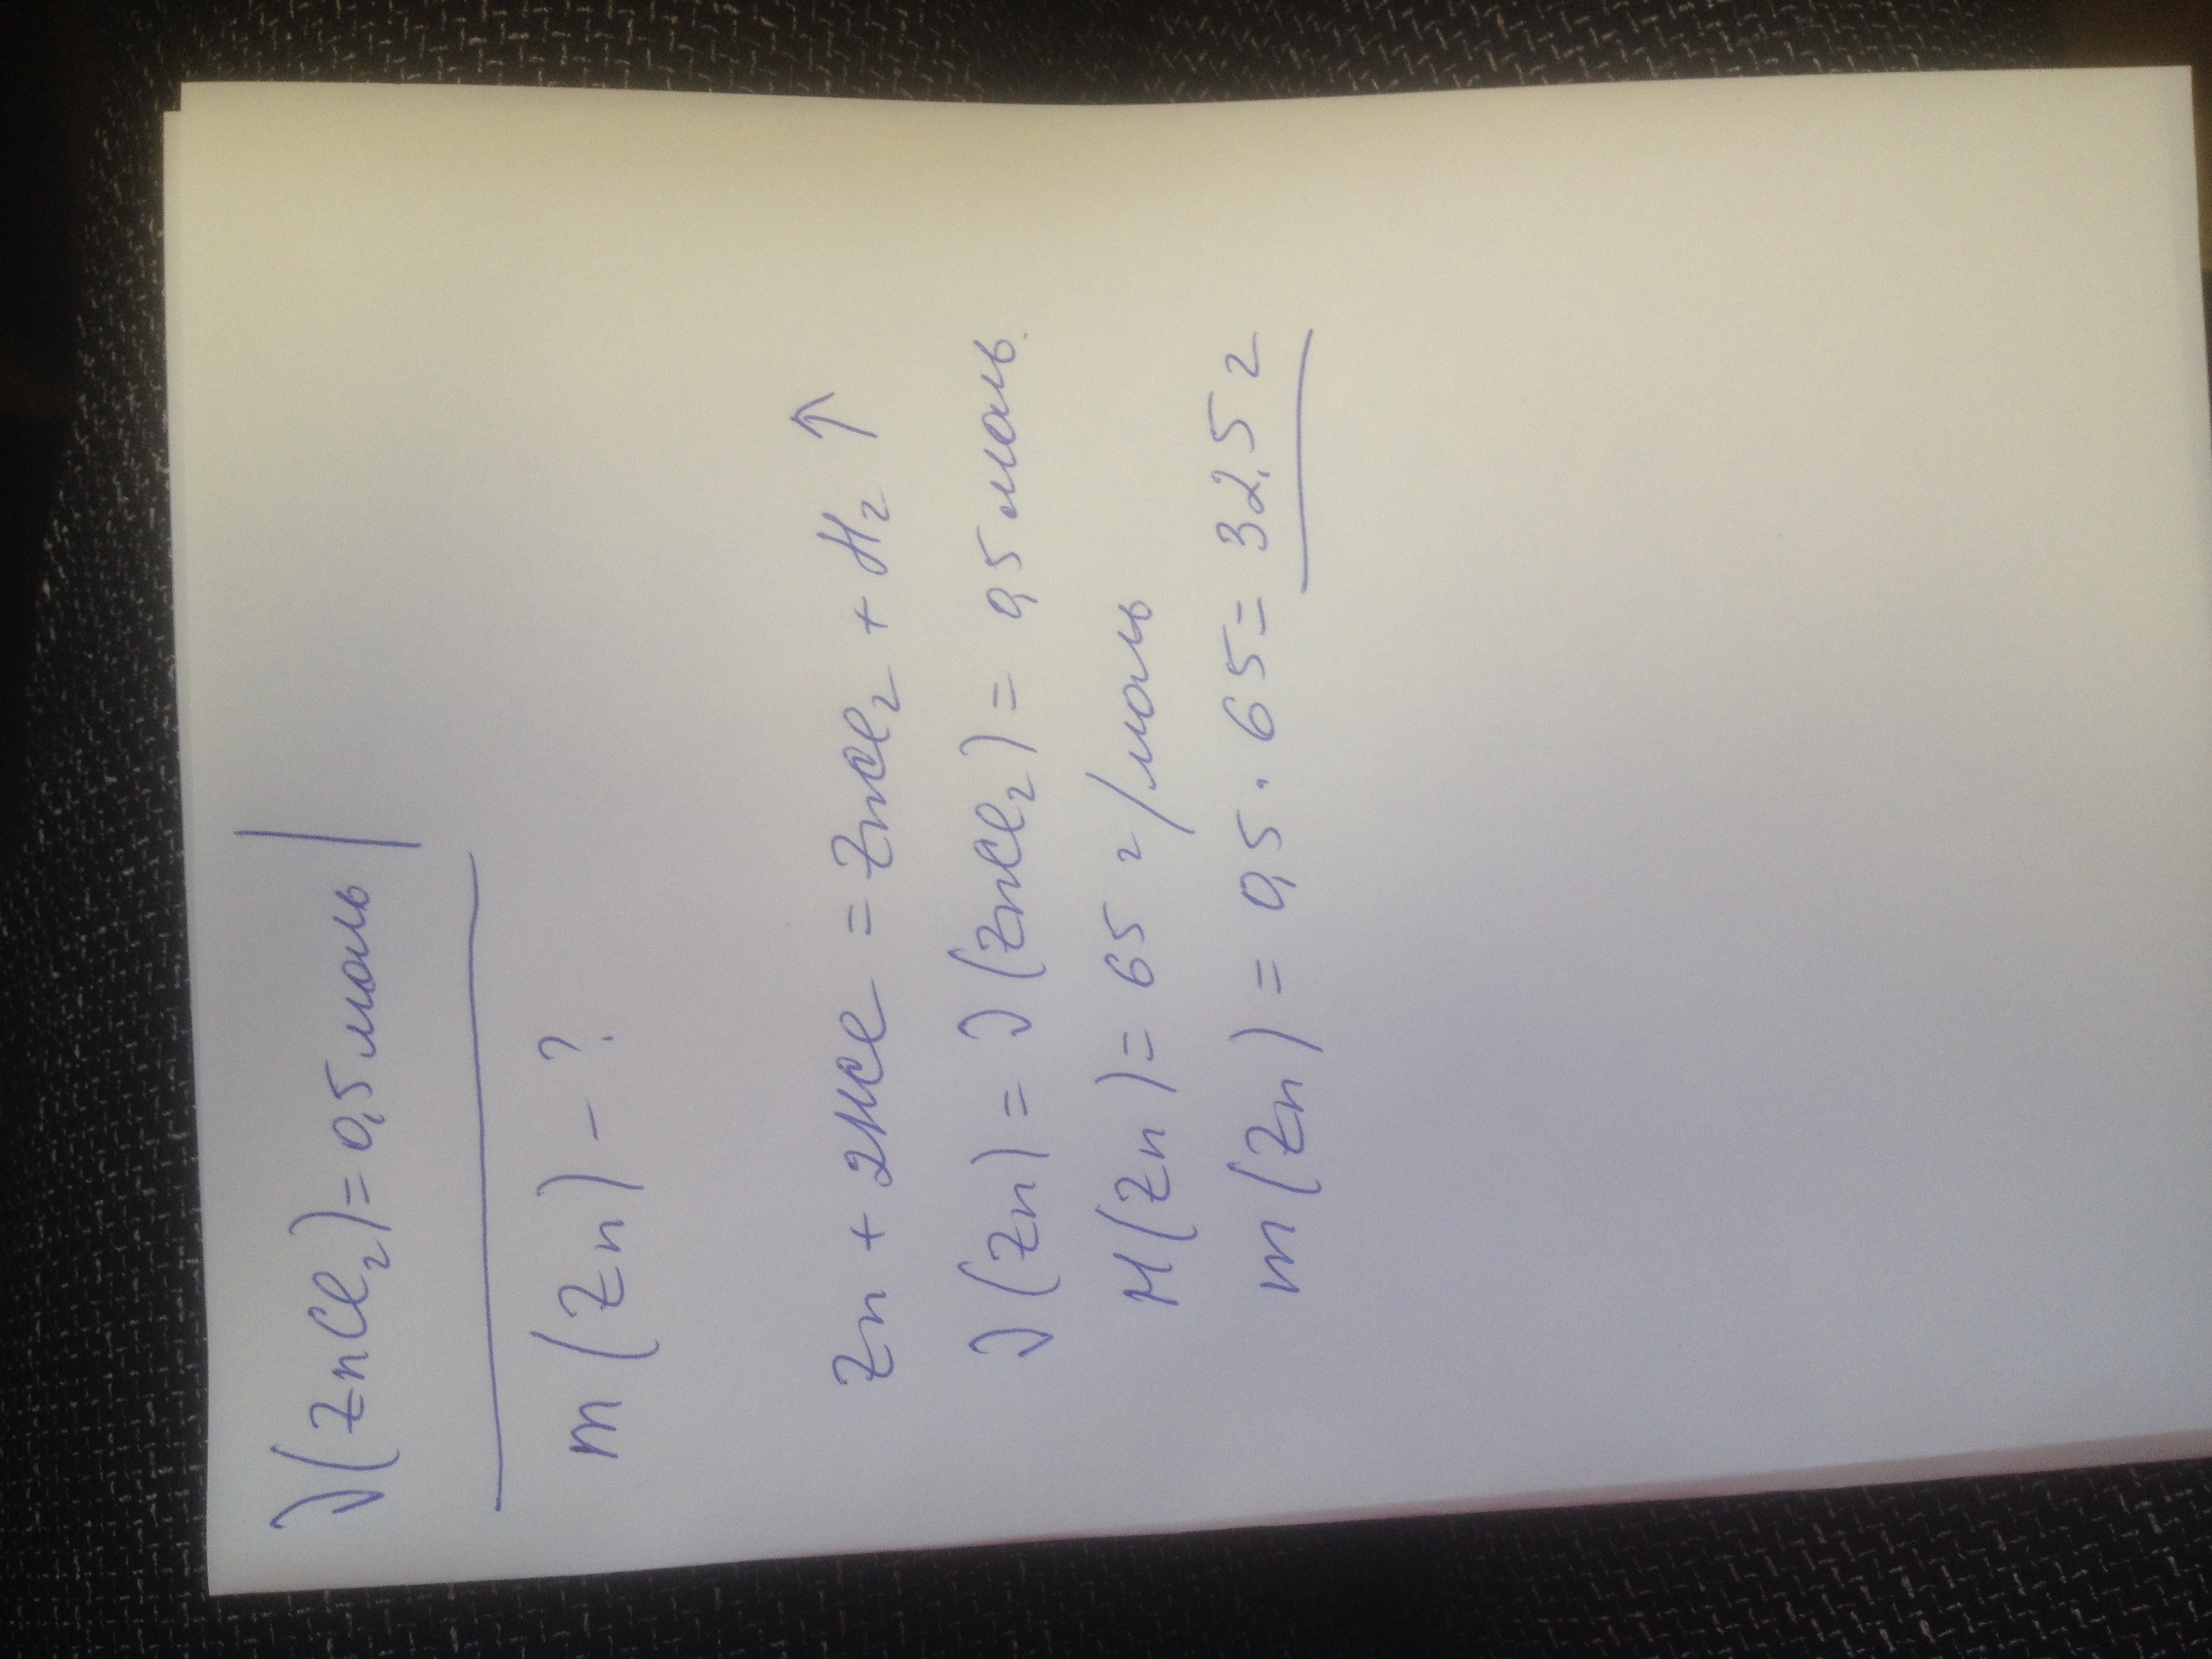 ν(ZnCl₂) = 0,5 моль
m(Zn) - ?
Zn + 2HCl = ZnCl₂ + H₂ ↑
ν(Zn) = ν(ZnCl₂) = 0,5 моль.
M(Zn) = 65 г/моль
m(Zn) = 0,5 · 65 = 32,5 г